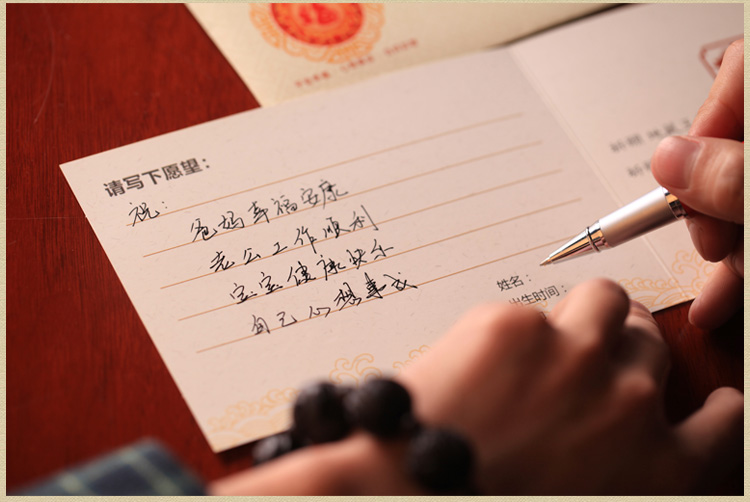 请写下愿望：
祝：
爸妈幸福安康
老公工作顺利
宝宝健康快乐
自己心想事成
姓名：
出生时间：